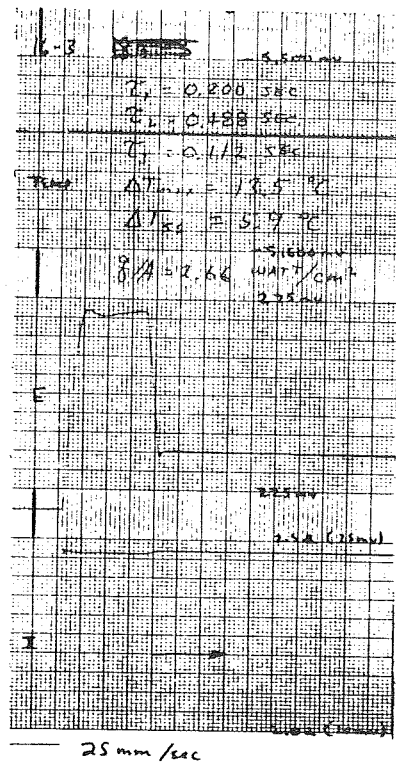 16-3
-5,500 mv
τ₁ = 0.200 SEC
τ₂ = 0.488 SEC
τ₃ = 0.112 SEC
TEMP ΔTmax = 13.5 °C
ΔTss = 5.9 °C
-5,600 mv
q/A = 2.66 WATT/cm²
275 mv
E
225 mv
2.5A (25mv)
I
25 mm/sec